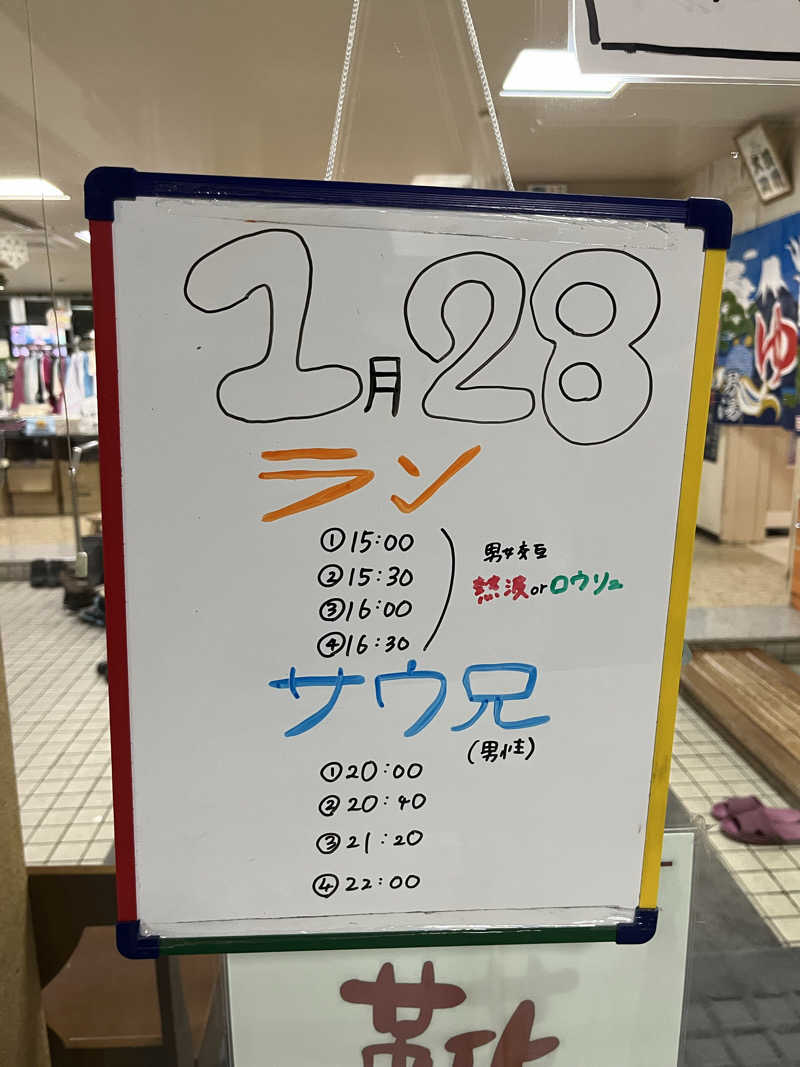 1月28
ラン
①15:00
②15:30
③16:00
④16:30
男女交互
熱波orロウリュ
サウ兄
(男性)
①20:00
②20:40
③21:20
④22:00
靴
ゆ